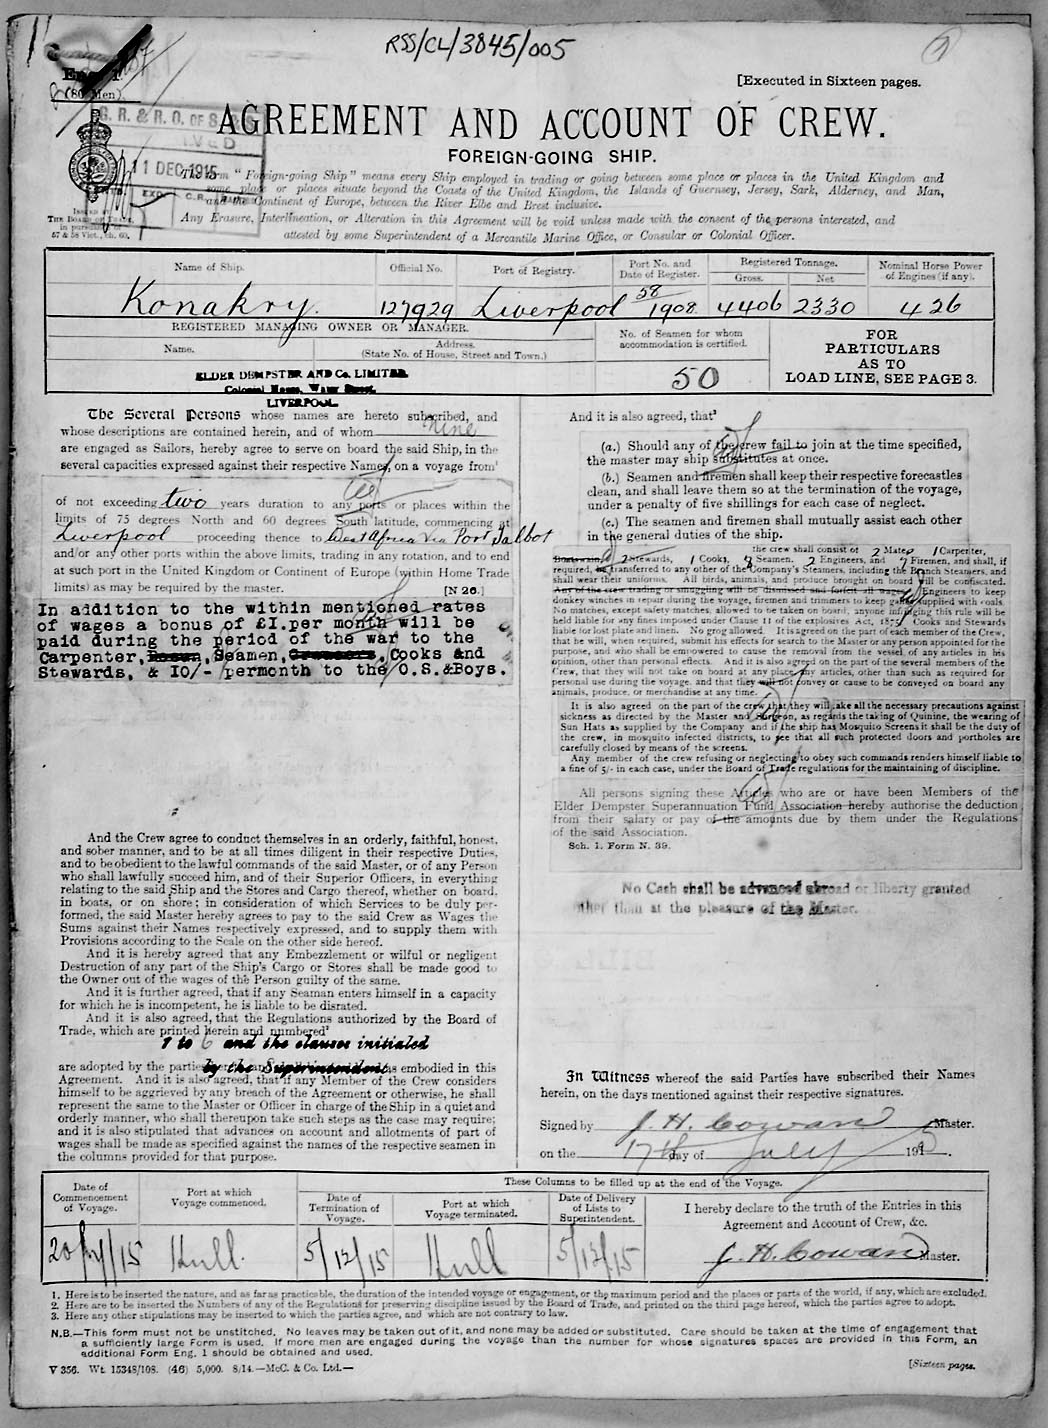 RSS/CL/3845/005
[Executed in Sixteen pages.
Eng. 1.
(80 Men)
AGREEMENT AND ACCOUNT OF CREW.
FOREIGN-GOING SHIP.
11 DEC 1915
The term "Foreign-going Ship" means every Ship employed in trading or going between some place or places in the United Kingdom and
some place or places situate beyond the Coasts of the United Kingdom, the Islands of Guernsey, Jersey, Sark, Alderney, and Man,
and the Continent of Europe, between the River Elbe and Brest inclusive.
Any Erasure, Interlineation, or Alteration in this Agreement will be void unless made with the consent of the persons interested, and
attested by some Superintendent of a Mercantile Marine Office, or Consular or Colonial Officer.
ISSUED BY
THE BOARD OF TRADE,
in pursuance of
57 & 58 Vict., ch. 60.
Name of Ship. Official No. Port of Registry. Port No. and Date of Register. Registered Tonnage. Gross. Net Nominal Horse Power of Engines (if any).
Konakry. 127929 Liverpool 58 1908 4406 2330 426
REGISTERED MANAGING OWNER OR MANAGER.
Name. Address. (State No. of House, Street and Town.)
No. of Seamen for whom accommodation is certified.
50
FOR
PARTICULARS
AS TO
LOAD LINE, SEE PAGE 3.
ELDER DEMPSTER AND Co. LIMITED.
Colonial House, Water Street,
LIVERPOOL.
The Several Persons whose names are hereto subscribed, and
whose descriptions are contained herein, and of whom nine
are engaged as Sailors, hereby agree to serve on board the said Ship, in the
several capacities expressed against their respective Names, on a voyage from¹
of not exceeding two years duration to any ports or places within the
limits of 75 degrees North and 60 degrees South latitude, commencing at
Liverpool proceeding thence to West Africa via Port Talbot
and/or any other ports within the above limits, trading in any rotation, and to end
at such port in the United Kingdom or Continent of Europe (within Home Trade
limits) as may be required by the master. [N 26.]
In addition to the within mentioned rates
of wages a bonus of £I.per month will be
paid during the period of the war to the
Carpenter, Bosun, Seamen, Greasers, Cooks and
Stewards, & IO/- permonth to the O.S.&Boys.
And the Crew agree to conduct themselves in an orderly, faithful, honest,
and sober manner, and to be at all times diligent in their respective Duties,
and to be obedient to the lawful commands of the said Master, or of any Person
who shall lawfully succeed him, and of their Superior Officers, in everything
relating to the said Ship and the Stores and Cargo thereof, whether on board,
in boats, or on shore; in consideration of which Services to be duly per-
formed, the said Master hereby agrees to pay to the said Crew as Wages the
Sums against their Names respectively expressed, and to supply them with
Provisions according to the Scale on the other side hereof.
And it is hereby agreed that any Embezzlement or wilful or negligent
Destruction of any part of the Ship's Cargo or Stores shall be made good to
the Owner out of the wages of the Person guilty of the same.
And it is further agreed, that if any Seaman enters himself in a capacity
for which he is incompetent, he is liable to be disrated.
And it is also agreed, that the Regulations authorized by the Board of
Trade, which are printed herein and numbered²
1 to 6 and the clauses initialed
by the Superintendent
are adopted by the parties hereto, and shall be considered as embodied in this
Agreement. And it is also agreed, that if any Member of the Crew considers
himself to be aggrieved by any breach of the Agreement or otherwise, he shall
represent the same to the Master or Officer in charge of the Ship in a quiet and
orderly manner, who shall thereupon take such steps as the case may require;
and it is also stipulated that advances on account and allotments of part of
wages shall be made as specified against the names of the respective seamen in
the columns provided for that purpose.
And it is also agreed, that³
(a.) Should any of the crew fail to join at the time specified,
the master may ship substitutes at once.
(b.) Seamen and firemen shall keep their respective forecastles
clean, and shall leave them so at the termination of the voyage,
under a penalty of five shillings for each case of neglect.
(c.) The seamen and firemen shall mutually assist each other
in the general duties of the ship.
the crew shall consist of 2 Mates 1 Carpenter,
Boatswain, 2 Stewards, 1 Cooks, Seamen. 2 Engineers, and 7 Firemen, and shall, if
required, be transferred to any other of the Company's Steamers, including the Branch Steamers, and
shall wear their uniforms. All birds, animals, and produce brought on board will be confiscated.
Any of the crew trading or smuggling will be dismissed and forfeit all wages. Engineers to keep
donkey winches in repair during the voyage, firemen and trimmers to keep same supplied with coals.
No matches, except safety matches, allowed to be taken on board, anyone infringing this rule will be
held liable for any fines imposed under Clause 11 of the explosives Act, 1875. Cooks and Stewards
liable for lost plate and linen. No grog allowed. It is agreed on the part of each member of the Crew,
that he will, when required, submit his effects for search to the Master or any person appointed for the
purpose, and who shall be empowered to cause the removal from the vessel of any articles in his
opinion, other than personal effects. And it is also agreed on the part of the several members of the
Crew, that they will not take on board at any place, any articles, other than such as required for
personal use during the voyage, and that they will not convey or cause to be conveyed on board any
animals, produce, or merchandise at any time.
It is also agreed on the part of the crew that they will take all the necessary precautions against
sickness as directed by the Master and Surgeon, as regards the taking of Quinine, the wearing of
Sun Hats as supplied by the Company and if the ship has Mosquito Screens it shall be the duty of
the crew, in mosquito infected districts, to see that all such protected doors and portholes are
carefully closed by means of the screens.
Any member of the crew refusing or neglecting to obey such commands renders himself liable to
a fine of 5/- in each case, under the Board of Trade regulations for the maintaining of discipline.
All persons signing these Articles who are or have been Members of the
Elder Dempster Superannuation Fund Association hereby authorise the deduction
from their salary or pay of the amounts due by them under the Regulations
of the said Association.
Sch. 1. Form N. 39.
No Cash shall be advanced abroad or liberty granted
other than at the pleasure of the Master.
In Witness whereof the said Parties have subscribed their Names
herein, on the days mentioned against their respective signatures.
Signed by J. H. Cowan Master.
on the 17th day of July 1915.
Date of Commencement of Voyage. Port at which Voyage commenced. These Columns to be filled up at the end of the Voyage.
Date of Termination of Voyage. Port at which Voyage terminated. Date of Delivery of Lists to Superintendent.
I hereby declare to the truth of the Entries in this
Agreement and Account of Crew, &c.
20/7/15 Hull. 5/12/15 Hull 5/12/15 J. H. Cowan Master.
1. Here is to be inserted the nature, and as far as practicable, the duration of the intended voyage or engagement, or the maximum period and the places or parts of the world, if any, which are excluded.
2. Here are to be inserted the Numbers of any of the Regulations for preserving discipline issued by the Board of Trade, and printed on the third page hereof, which the parties agree to adopt.
3. Here any other stipulations may be inserted to which the parties agree, and which are not contrary to law.
N.B.—This form must not be unstitched. No leaves may be taken out of it, and none may be added or substituted. Care should be taken at the time of engagement that
a sufficiently large Form is used. If more men are engaged during the voyage than the number for whose signatures spaces are provided in this Form, an
additional Form Eng. 1 should be obtained and used.
V 356. Wt. 15348/108. (46) 5,000. 8/14.—McC. & Co. Ltd.—
[Sixteen pages.